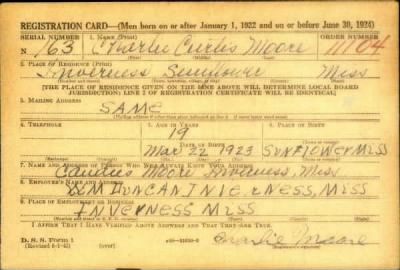 REGISTRATION CARD—(Men born on or after January 1, 1922 and on or before June 30, 1924)
SERIAL NUMBER 1. NAME (Print) ORDER NUMBER
N 163 Charlie Curtis Moore 11104
(First) (Middle) (Last)
2. PLACE OF RESIDENCE (Print)
Inverness Sunflower Miss
[THE PLACE OF RESIDENCE GIVEN ON THE LINE ABOVE WILL DETERMINE LOCAL BOARD
JURISDICTION; LINE 2 OF REGISTRATION CERTIFICATE WILL BE IDENTICAL]
3. MAILING ADDRESS
SAME
4. TELEPHONE 5. AGE IN YEARS 6. PLACE OF BIRTH
19
DATE OF BIRTH
Mar 22 1923 SUNFLOWER MISS
7. NAME AND ADDRESS OF PERSON WHO WILL ALWAYS KNOW YOUR ADDRESS
Moore Inverness, Miss
8. EMPLOYER'S NAME AND ADDRESS
DUNCAN INVERNESS, MISS
9. PLACE OF EMPLOYMENT OR BUSINESS
INVERNESS MISS
I AFFIRM THAT I HAVE VERIFIED ABOVE ANSWERS AND THAT THEY ARE TRUE.
D. S. S. Form 1
(Revised 6-1-42)
Charlie Moore